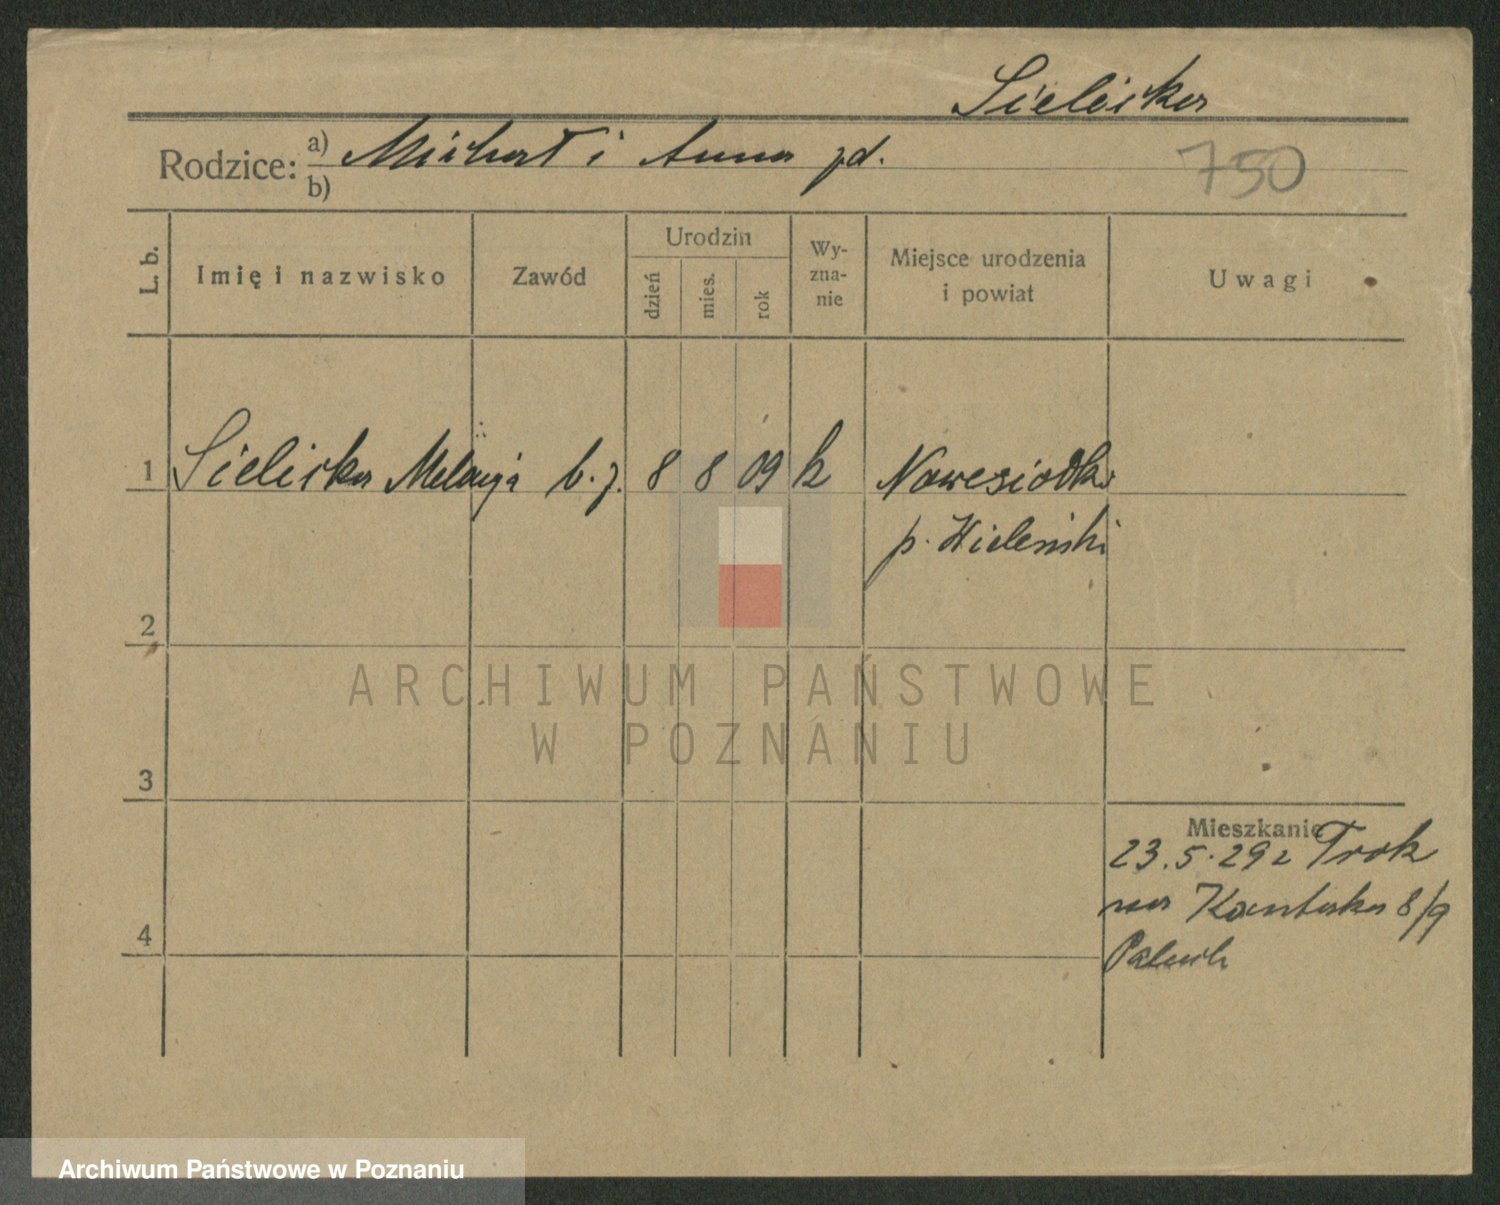 Sielicka
Rodzice: a) Michał i Anna zd.
b)
750
L. b.
Imię i nazwisko
Zawód
Urodzin
dzień
mies.
rok
Wy-
zna-
nie
Miejsce urodzenia
i powiat
Uwagi
1 Sielicka Melanja b. z. 8 8 09 k Nowesiodło
p. Wileński
2
3
4
Mieszkanie
23.5.29 z Trok
na Kantaka 8/9
Paluch
ARCHIWUM PAŃSTWOWE
W POZNANIU
Archiwum Państwowe w Poznaniu